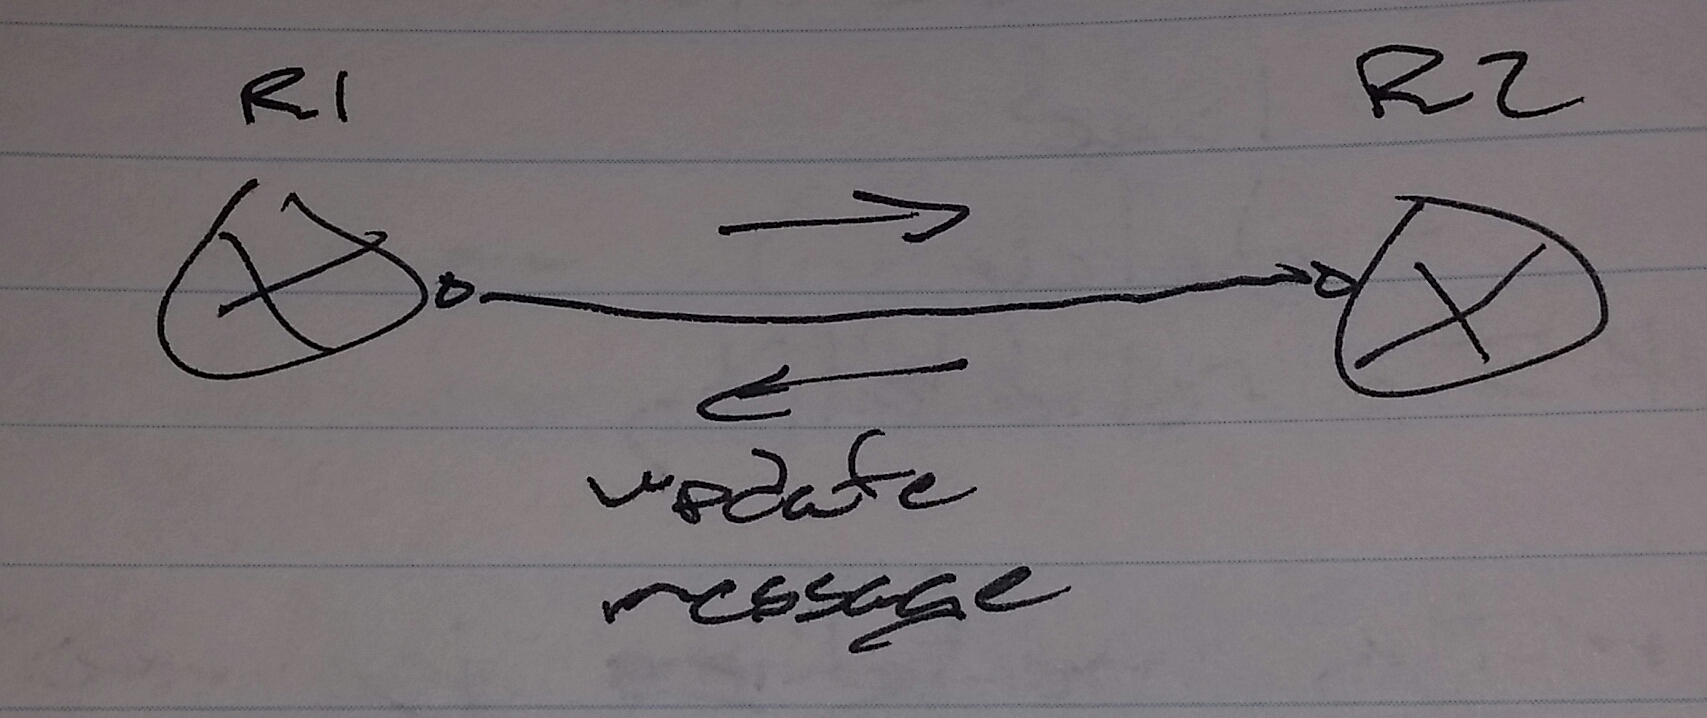 R1 R2
update
message